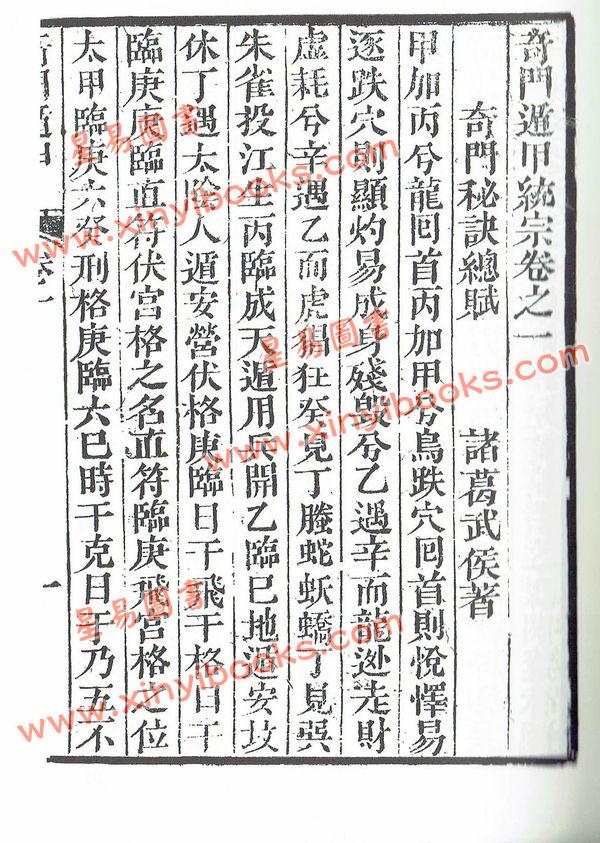 奇門遁甲統宗卷之一
奇門秘訣總賦 諸葛武侯著
甲加丙兮龍回首丙加甲兮鳥跌穴回首則悅懌易
逐跌穴則顯灼易成身殘毀兮乙遇辛而龍逃走財
虛耗兮辛遇乙而虎猖狂癸見丁螣蛇妖蟜丁見癸
朱雀投江生丙臨戊天遁用兵開乙臨己地遁安坟
休丁遇太陰人遁安營伏格庚臨日干飛干格日干
臨庚庚臨直符伏宮格之名直符臨庚飛宮格之位
太甲臨庚六癸刑格庚臨六巳時干克日干乃五不
奇門遁甲 卷一 一
星易圖書
www.xinyibooks.com
星易圖書
www.xinyibooks.com
星易圖書
www.xinyibooks.com